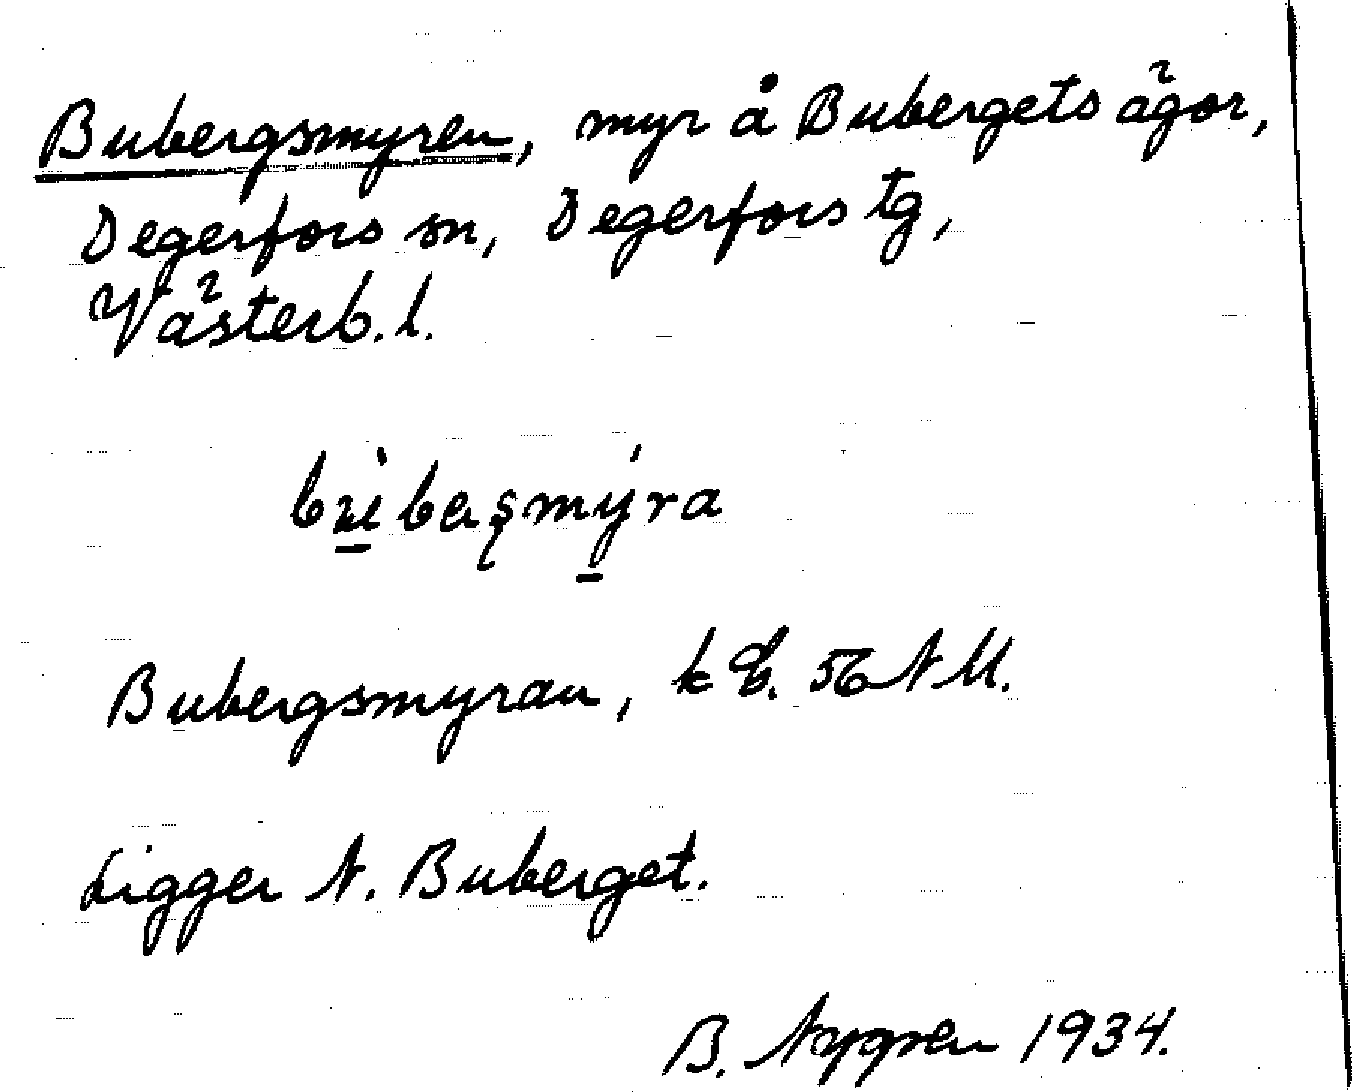 Bubergsmyren, myr å Bubergets ägor,
Degerfors sn, Degerfors tg,
Västerb. l.
Bubergsmyran, k 56 N
Ligger N. Buberget.
B. Nygren 1934.